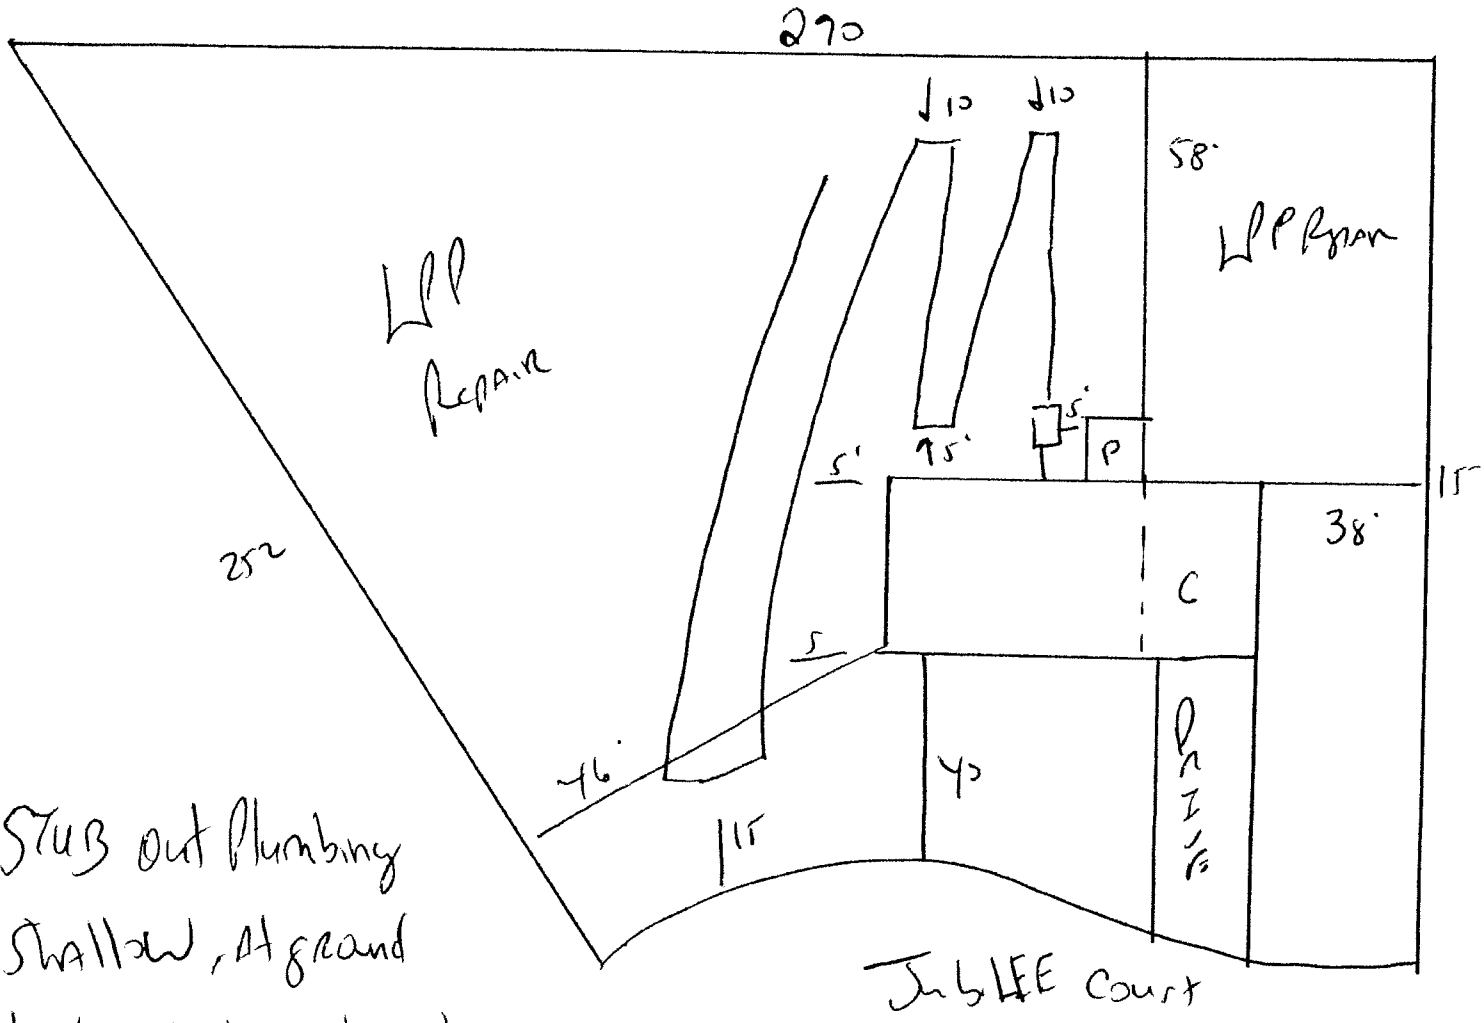 290
↓10 ↓10
58'
LPP Repair
LPP
Repair
5'
P
↑5'
5'
15
38'
252
C
5
46'
40
Drive
15
STUB out Plumbing
Shallow, At ground
Jubilee Court